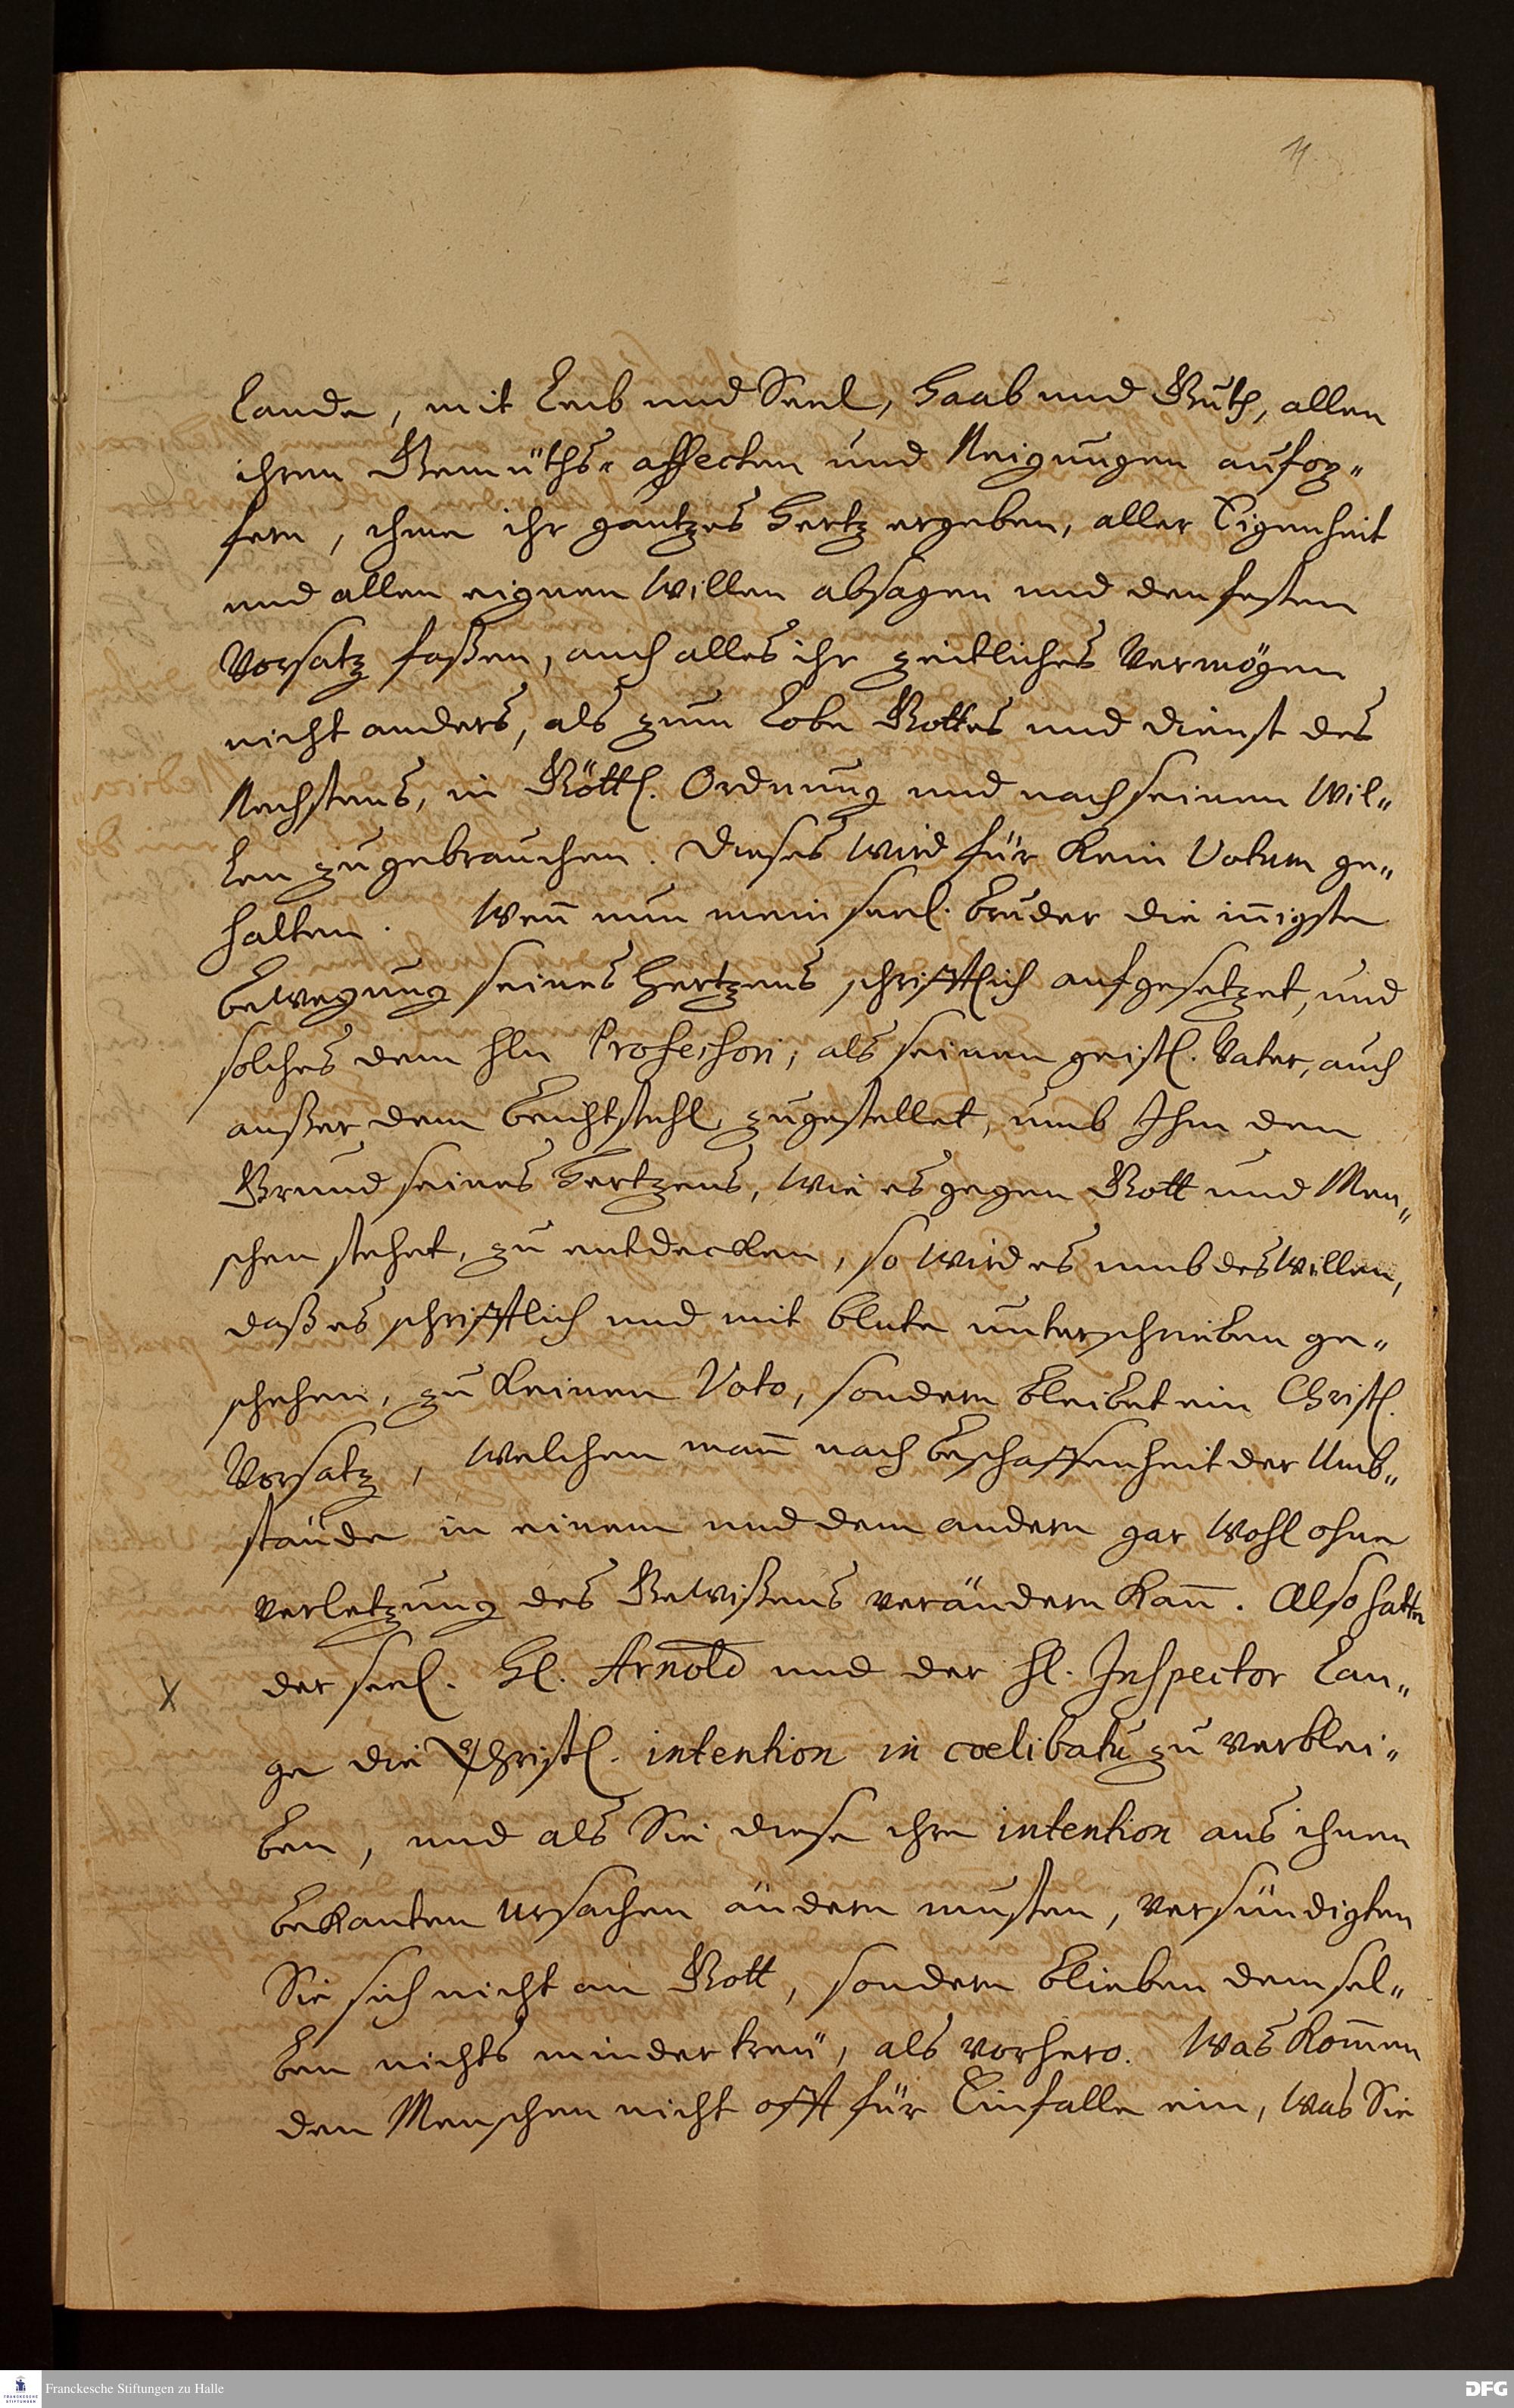 11
Lande, mit Leib und Seel, Haab und Guth, allen
ihren Gemüths-affecten und Neigungen aufop-
fern, ihme ihr gantzes Hertz ergeben, aller Eigenheit
und allen eignen Willen absagen und den festen
Vorsatz faßen, auch alles ihr zeitliches Vermögen
nicht anders, als zum Lobe Gottes und Dienst des
Nechstens, in Göttl. Ordnung und nach seinem Wil-
len zu gebrauchen. Dieses wird für kein Votum ge-
halten. Wen̄ nun mein seel. Bruder die in̄igste
Bewegung seines Hertzens schrifftlich aufgesetzet, und
solches dem Hln Professori, als seinem geistl. Vater, auch
außer dem Beichtstuhl zugestellet, umb Ihm den
Grund seines Hertzens, wie es gegen Gott und Men-
schen stehet, zu entdecken, so wird es umb deswillen,
daß es schrifftlich und mit Blute unterschrieben ge-
schehen, zu keinem Voto, sondern bleibet ein Christl.
Vorsatz, welchen man̄ nach Beschaffenheit der Umb-
stände in einem und dem andern gar wohl ohne
Verletzung des Gewißens verändern kan̄. Also hatte
der seel. Hl. Arnold und der Hl. Inspector Lan-
ge die Christl. intention in coelibatu zu verblei-
ben, und als Sie diese ihre intention aus ihnen
bekanten Ursachen ändern musten, versündigten
Sie sich nicht an Gott, sondern blieben demsel-
ben nichts minder treu, als vorhero. Was kom̄en
den Menschen nicht offt für Einfalle ein, was Sie
Franckesche Stiftungen zu Halle
DFG